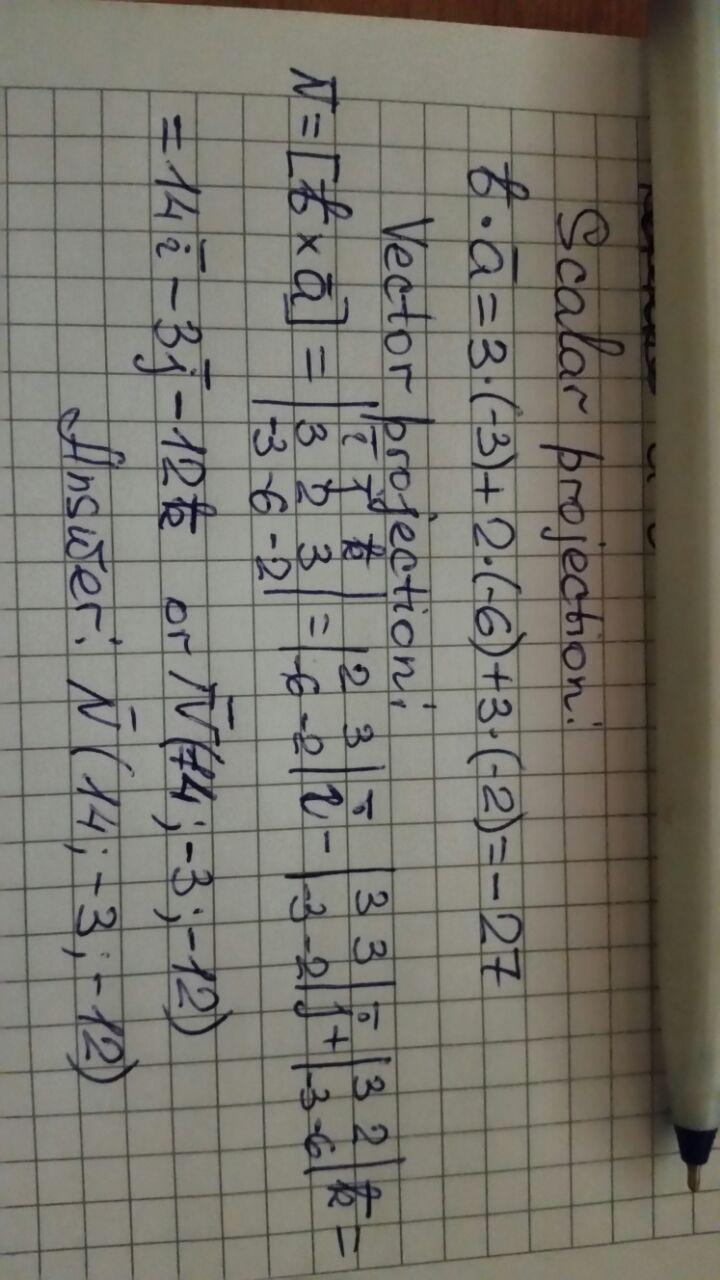 Scalar projection:
b̄ · ā = 3·(-3) + 2·(-6) + 3·(-2) = -27
Vector projection:
N̄ = [b̄ × ā] = |ī j̄ k̄; 3 2 3; -3 -6 -2| = |2 3; -6 -2| ī - |3 3; -3 -2| j̄ + |3 2; -3 -6| k̄ =
= 14ī - 3j̄ - 12k̄ or N̄(14; -3; -12)
Answer: N̄(14; -3; -12)